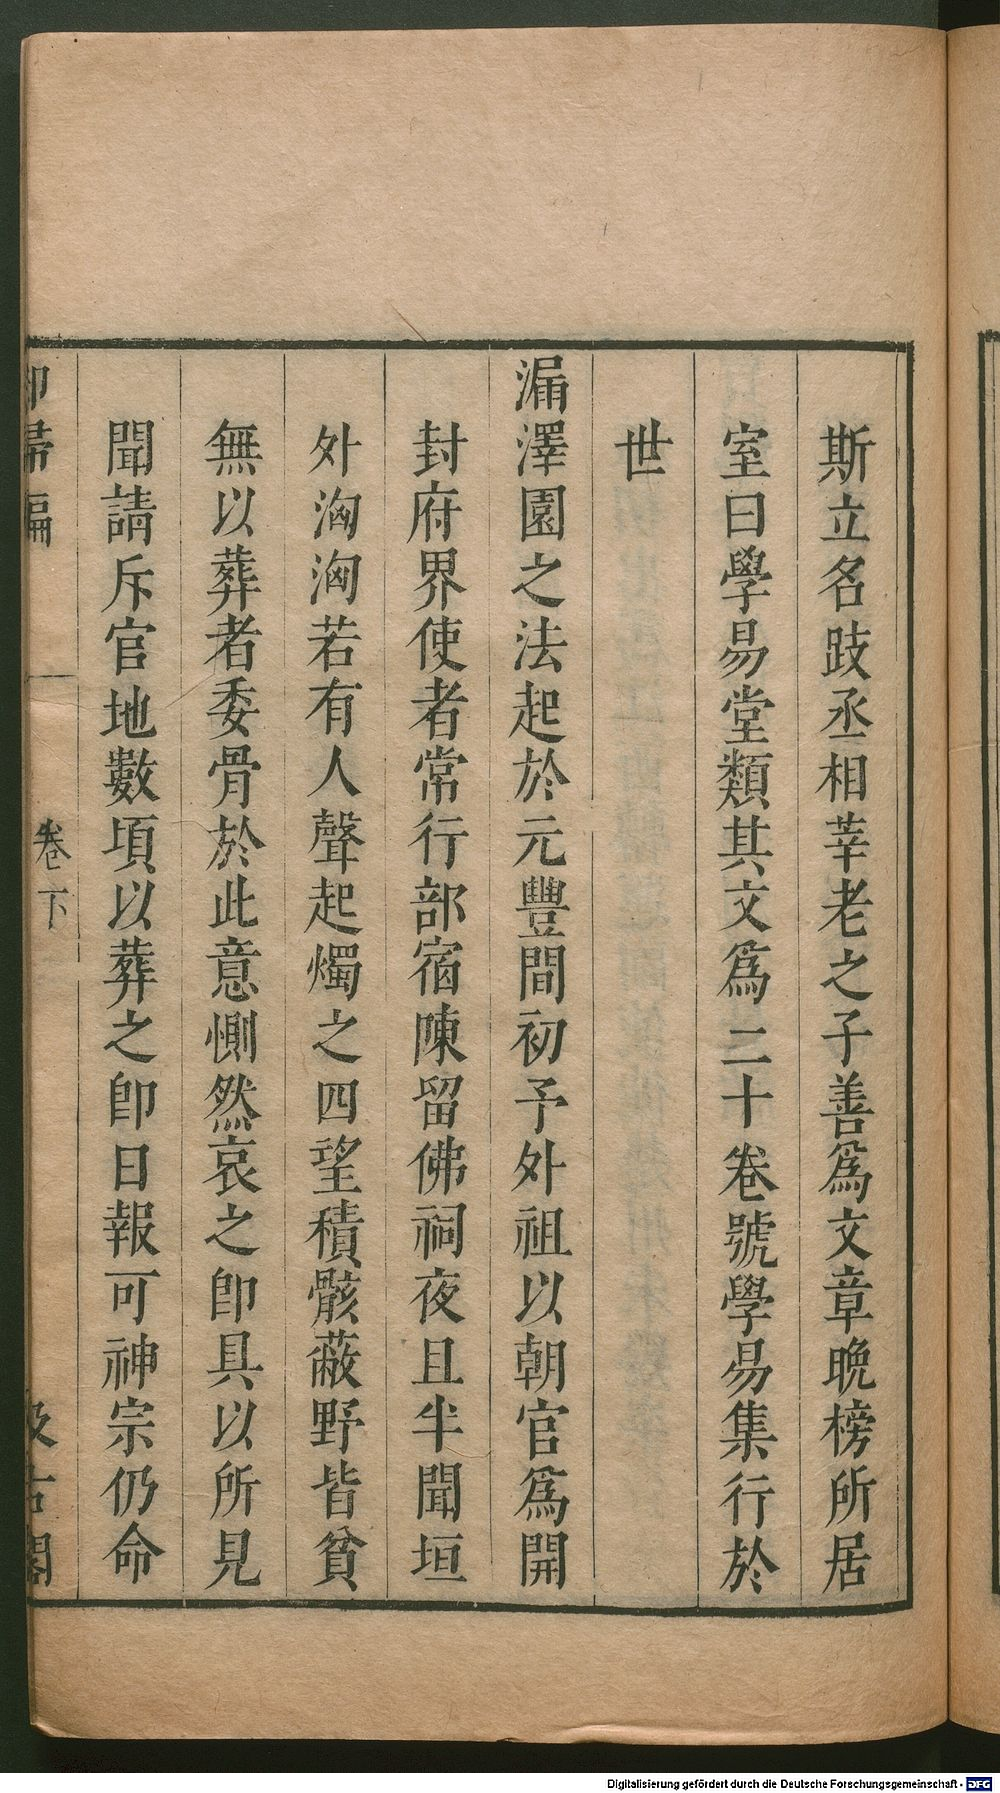 斯立名跂丞相莘老之子善爲文章晚榜所居
室曰學易堂類其文爲二十卷號學易集行於
世
漏澤園之法起於元豐間初予外祖以朝官爲開
封府界使者常行部宿陳留佛祠夜且半聞垣
外洶洶若有人聲起燭之四望積骸蔽野皆貧
無以葬者委骨於此意惻然哀之卽具以所見
聞請斥官地數頃以葬之卽日報可神宗仍命
卻掃編 卷下 汲古閣
Digitalisierung gefördert durch die Deutsche Forschungsgemeinschaft - DFG